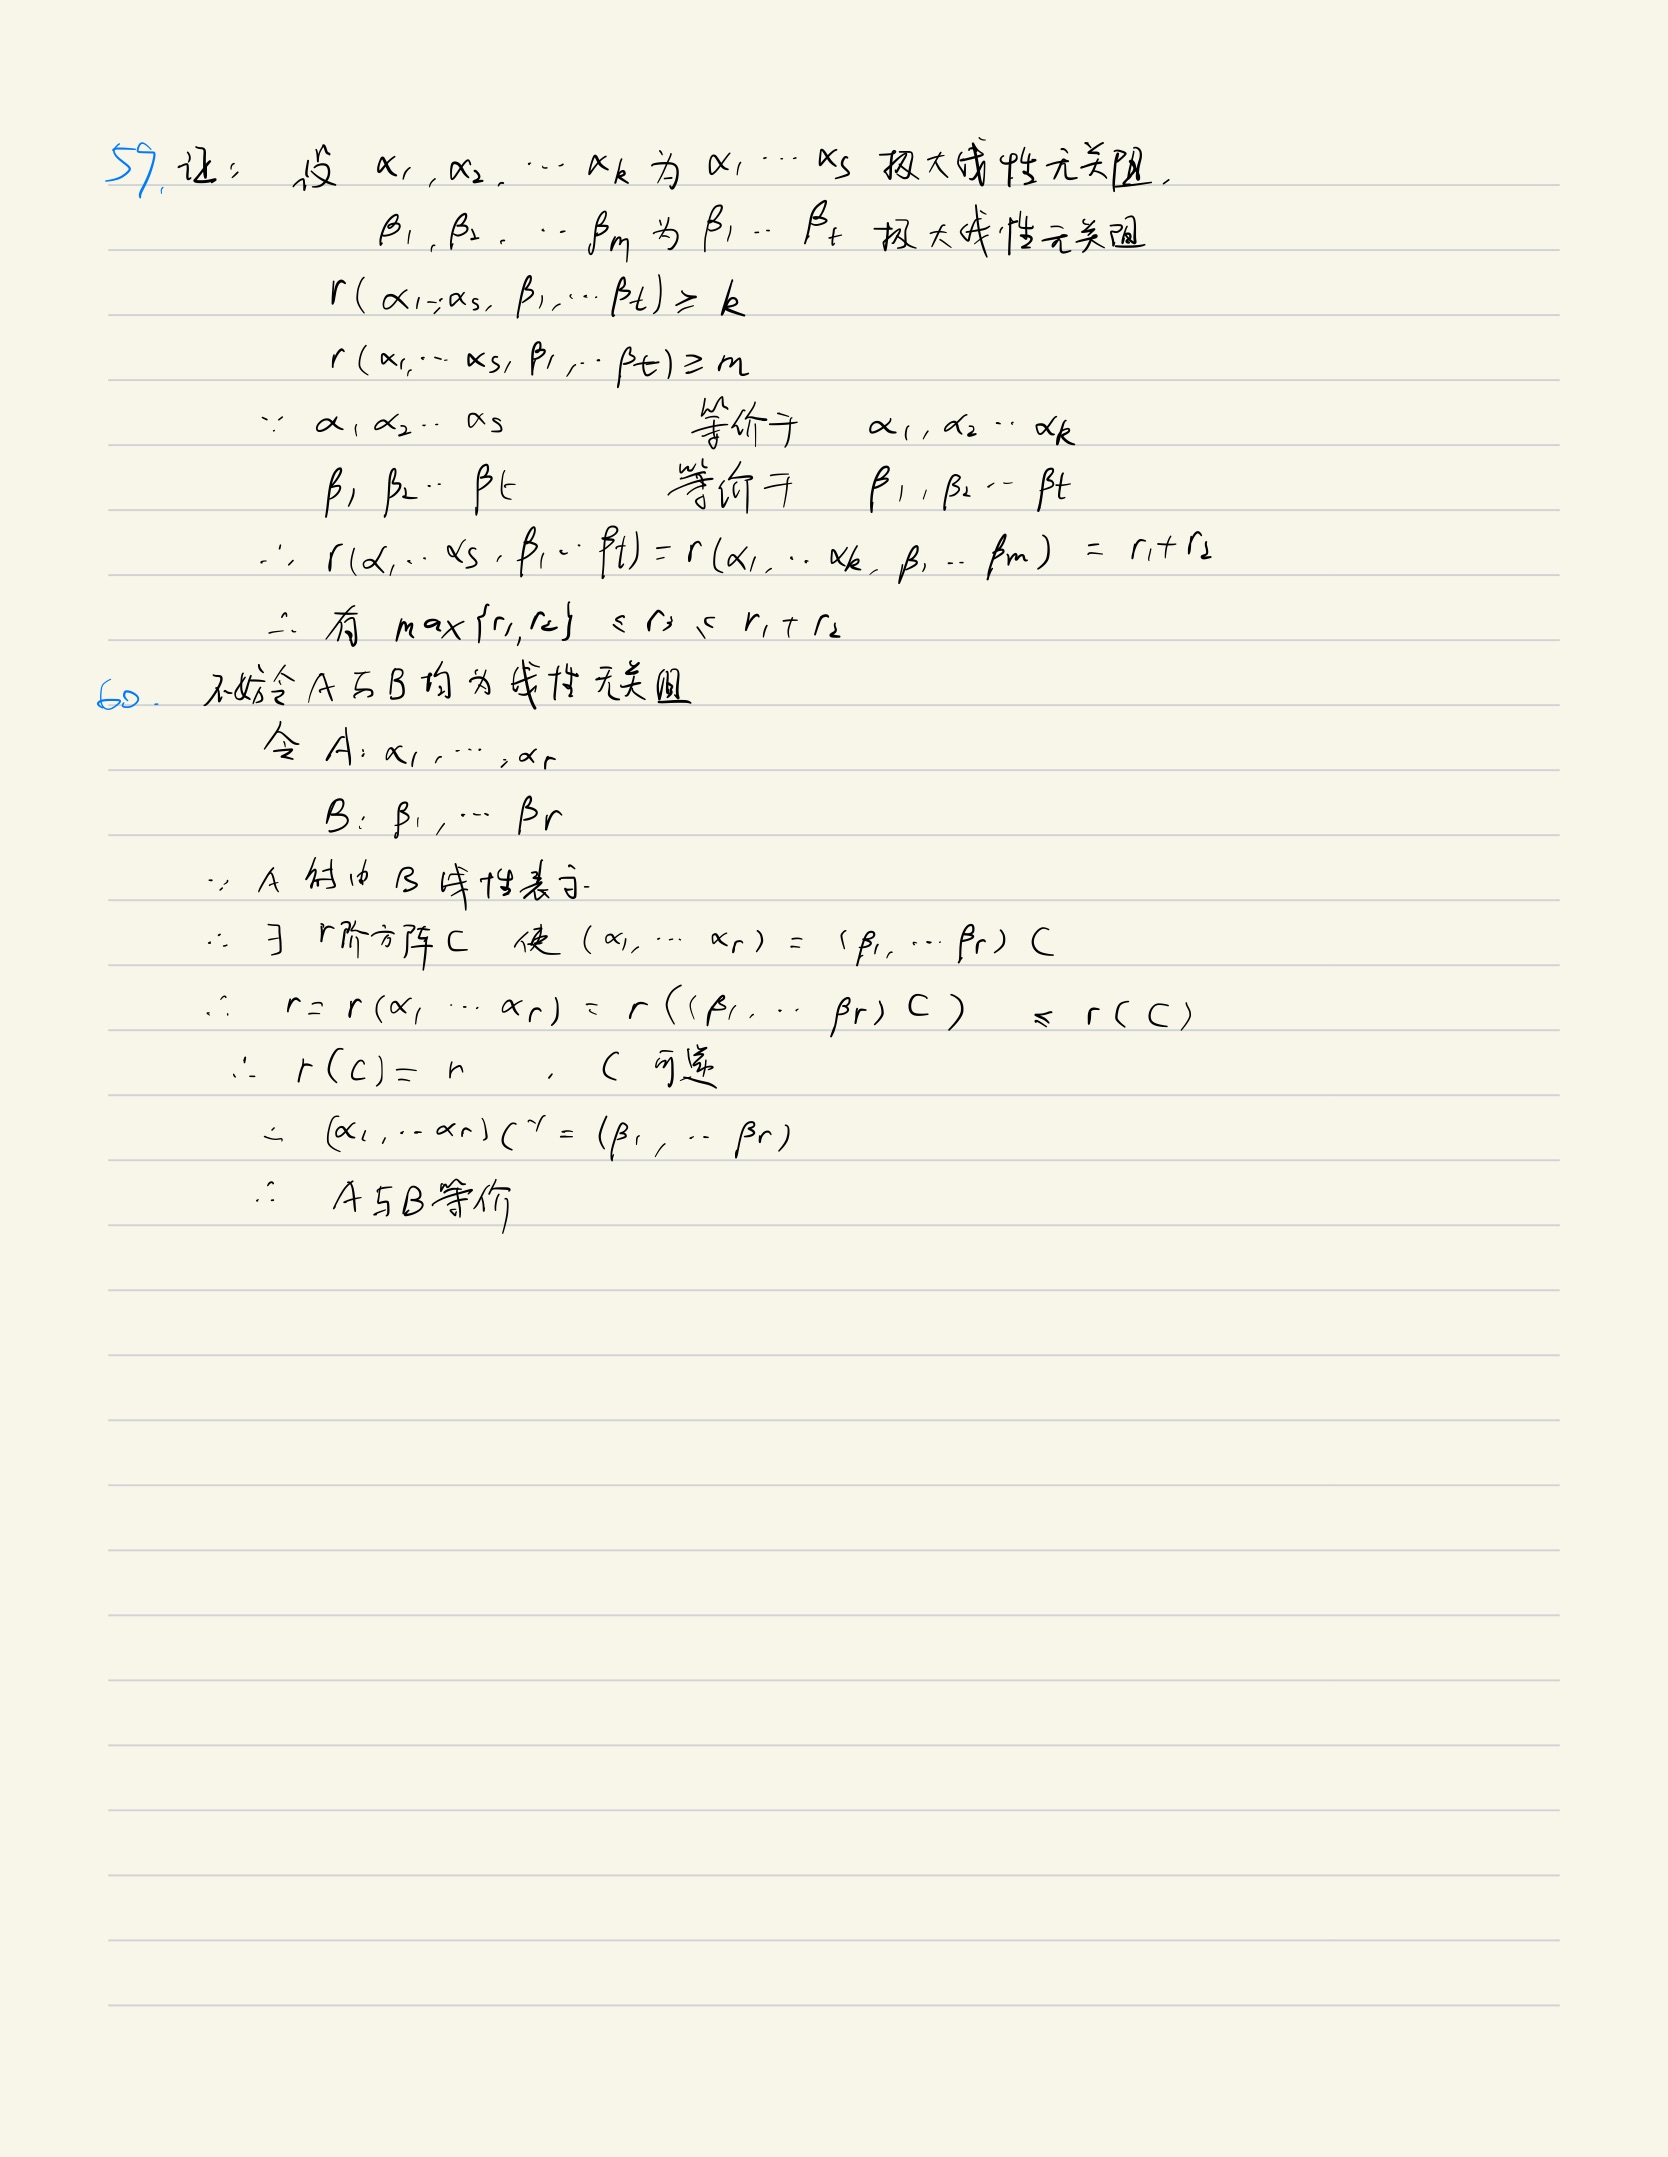 59. 证: 设 α₁, α₂, … αₖ 为 α₁ … αₛ 极大线性无关组.
β₁, β₂, … βₘ 为 β₁ … βₜ 极大线性无关组
r(α₁…αₛ, β₁, … βₜ) ≥ k
r(α₁, … αₛ, β₁, … βₜ) ≥ m
∵ α₁ α₂ … αₛ 等价于 α₁, α₂ … αₖ
β₁ β₂ … βₜ 等价于 β₁, β₂ … βt
∴ r(α₁ … αₛ, β₁ … βₜ) = r(α₁, … αₖ, β₁ … βₘ) = r₁+r₂
∴ 有 max{r₁,r₂} ≤ r₃ ≤ r₁+r₂
60. 不妨令 A与B均为线性无关组
令 A: α₁, …, αᵣ
B: β₁, … βᵣ
∵ A 能由 B 线性表示
∴ ∃ r阶方阵 C 使 (α₁, … αᵣ) = (β₁, … βᵣ) C
∴ r = r(α₁ … αᵣ) = r((β₁, … βᵣ) C) ≤ r(C)
∴ r(C) = r , C 可逆
∴ (α₁, … αᵣ) C⁻¹ = (β₁, … βᵣ)
∴ A与B等价